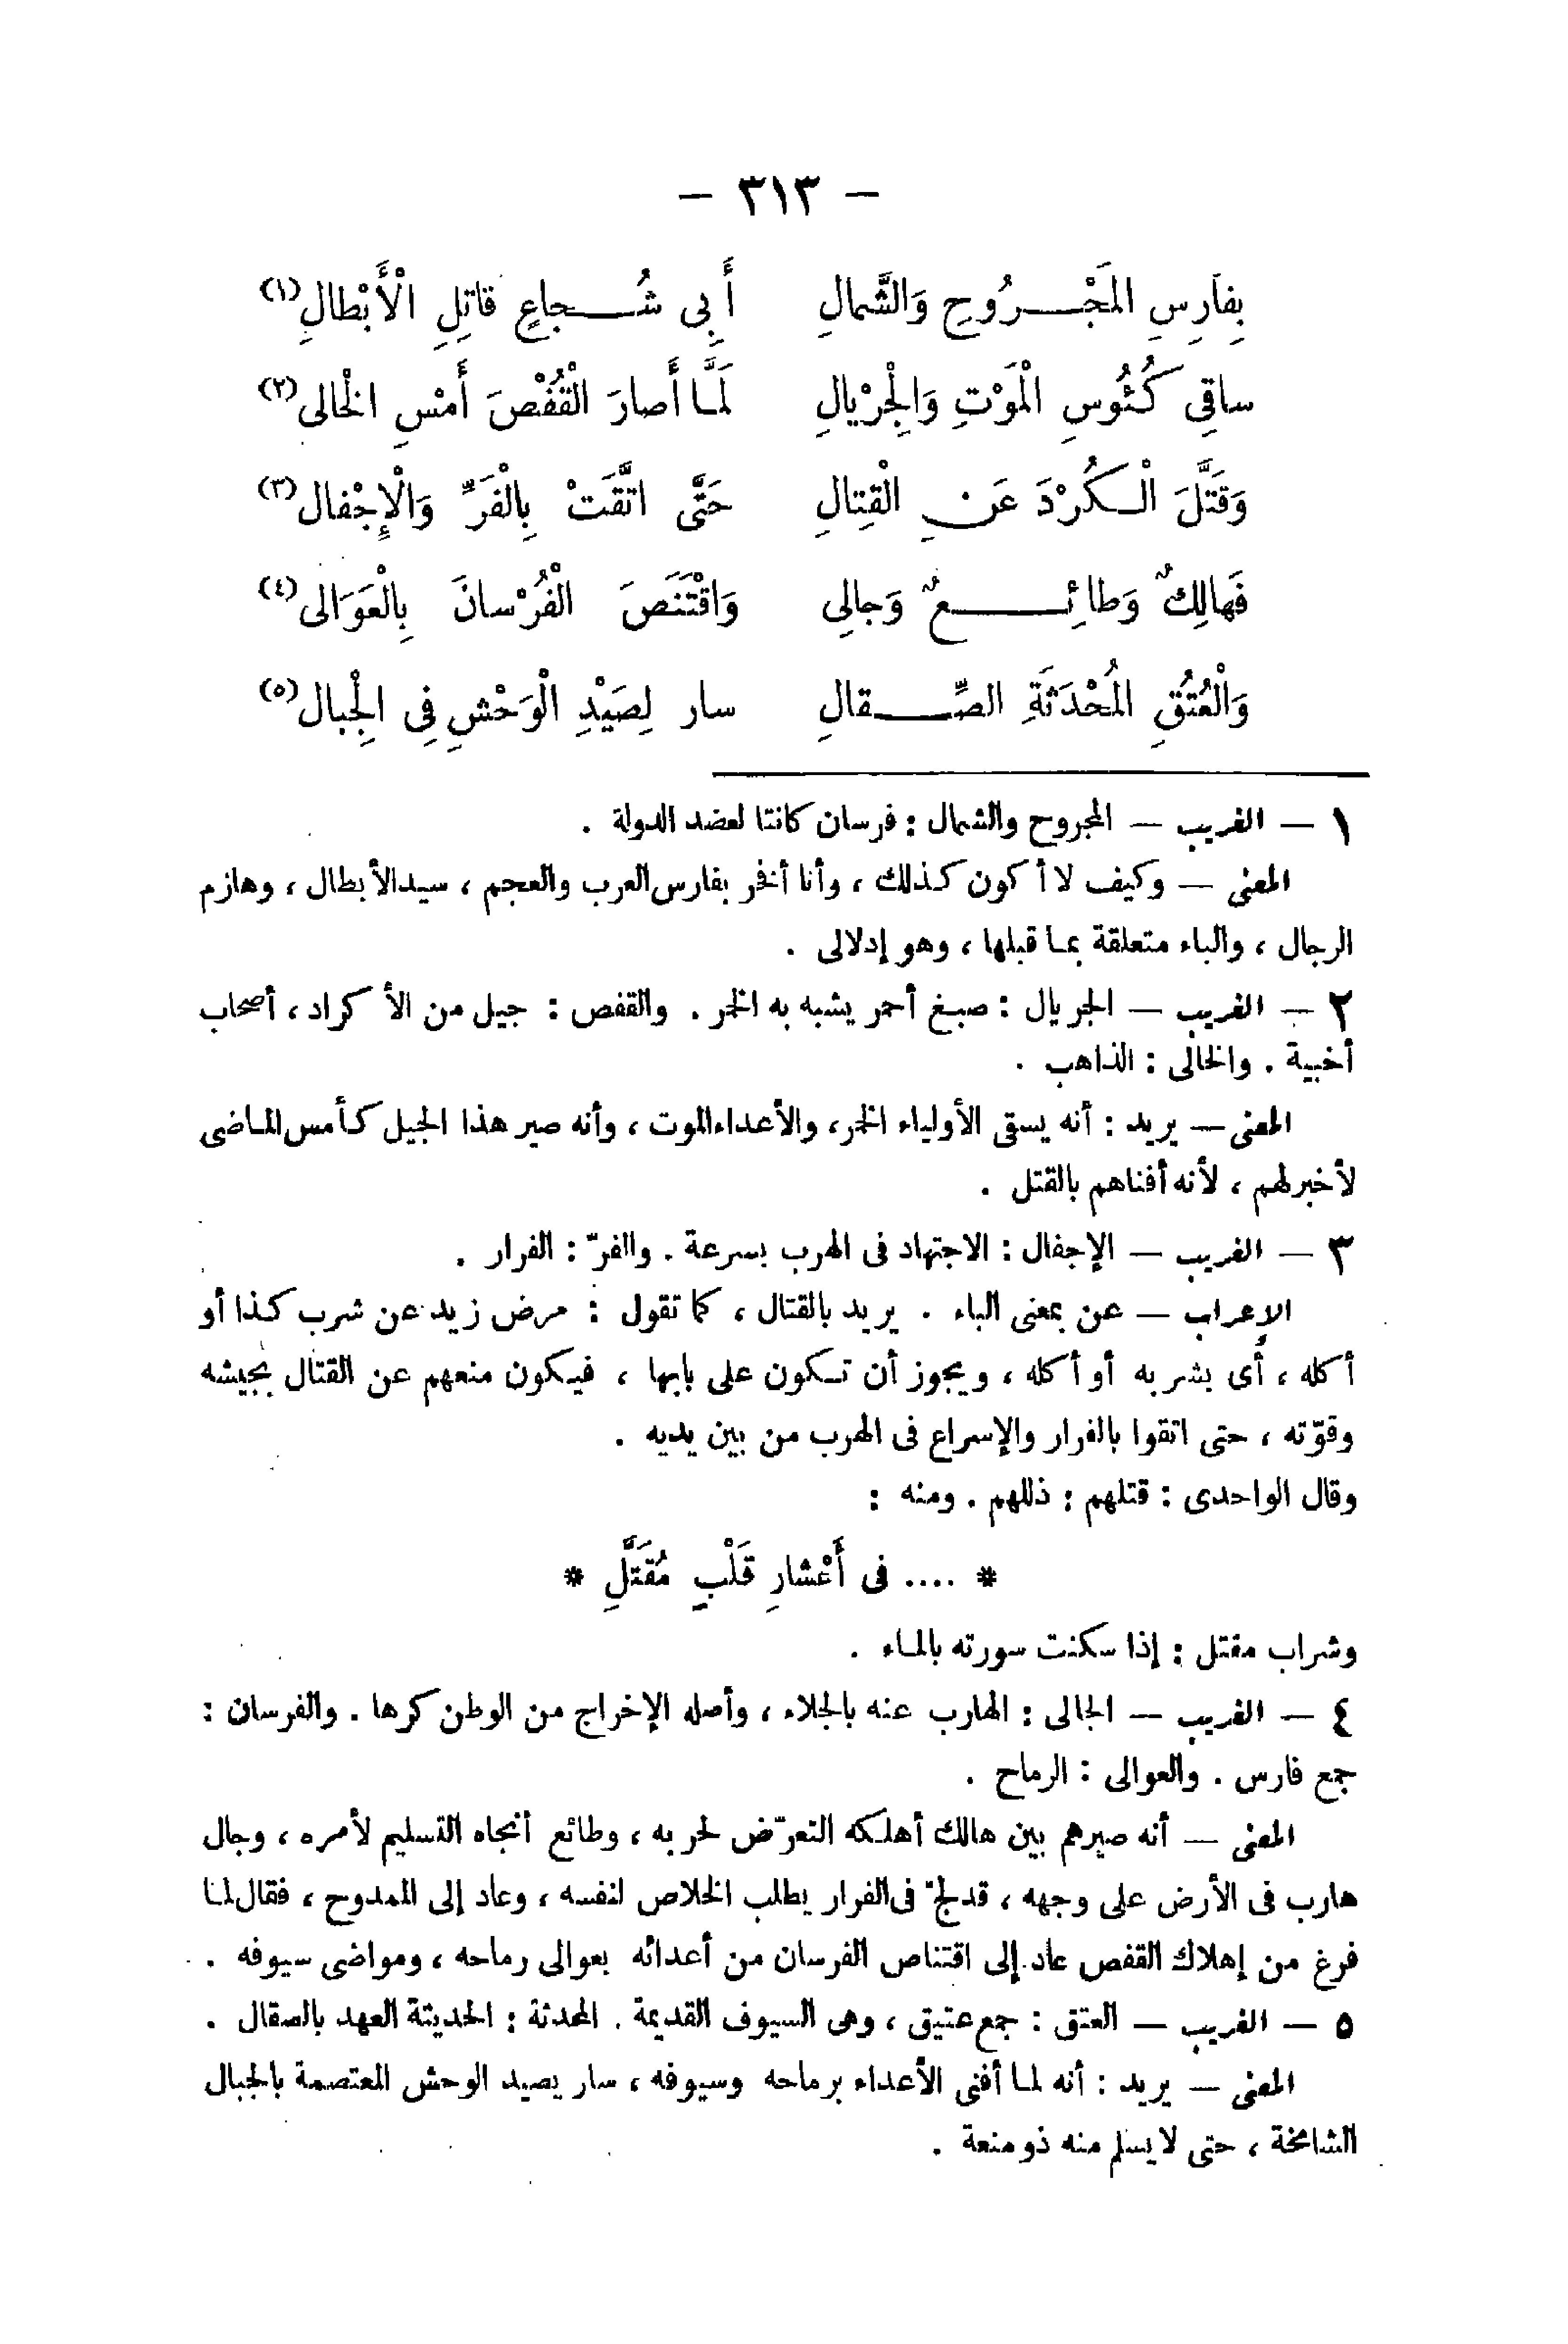 — ٣١٣ —
بِفارِسِ المَجْـرُوحِ وَالشَّمالِ أَبِى شُـجاعٍ قاتِلِ الْأَبْطالِ(١)
ساقِى كُئُوسِ الْمَوْتِ وَالْجِرْيالِ لَمَّا أَصارَ الْقُفْصَ أَمْسِ الْخالى(٢)
وَقَتَّلَ الْـكُرْدَ عَنِ الْقِتالِ حَتَّى اتَّقَتْ بِالْفَرِّ وَالْإِجْفالِ(٣)
فَهالِكٌ وَطائِـعٌ وَجالِى وَاقْتَنَصَ الْفُرْسانَ بِالْعَوَالى(٤)
وَالْعُتُقِ الْمُحْدَثَةِ الصِّـقالِ سار لِصَيْدِ الْوَحْشِ فِى الْجِبالِ(٥)
١ — الغريب — المجروح والشمال : فرسان كانتا لعضد الدولة .
المعنى — وكيف لا أكون كذلك ، وأنا أفخر بفارس العرب والعجم ، سيد الأبطال ، وهازم
الرجال ، والباء متعلقة بما قبلها ، وهو إدلالى .
٢ — الغريب — الجريال : صبغ أحمر يشبه به الخمر . والقفص : جيل من الأكراد ، أصحاب
أخبية . والخالى : الذاهب .
المعنى — يريد : أنه يسقى الأولياء الخمر، والأعداء الموت ، وأنه صير هذا الجيل كأمس الماضى
لأخبر لهم ، لأنه أفناهم بالقتل .
٣ — الغريب — الإجفال : الاجتهاد فى الهرب بسرعة . والفرّ : الفرار .
الإعراب — عن بمعنى الباء . يريد بالقتال ، كما تقول : مرض زيد عن شرب كذا أو
أكله ، أى بشربه أو أكله ، ويجوز أن تـكون على بابها ، فيكون منعهم عن القتال بجيشه
وقوّته ، حتى اتقوا بالفرار والإسراع فى الهرب من بين يديه .
وقال الواحدى : قتلهم : ذللهم . ومنه :
* .... فى أَعْشارِ قَلْبٍ مُقَتَّلِ *
وشراب مقتل : إذا سكنت سورته بالماء .
٤ — الغريب — الجالى : الهارب عنه بالجلاء ، وأصله الإخراج من الوطن كرها . والفرسان :
جمع فارس . والعوالى : الرماح .
المعنى — أنه صيرهم بين هالك أهلكه التعرّض لحربه ، وطائع أنجاه التسليم لأمره ، وجال
هارب فى الأرض على وجهه ، قد لجّ فى الفرار يطلب الخلاص لنفسه ، وعاد إلى الممدوح ، فقال لما
فرغ من إهلاك القفص عاد إلى اقتناص الفرسان من أعدائه بعوالى رماحه ، ومواضى سيوفه .
٥ — الغريب — العتق : جمع عتيق ، وهى السيوف القديمة . المحدثة : الحديثة العهد بالصقال .
المعنى — يريد : أنه لما أفنى الأعداء برماحه وسيوفه ، سار يصيد الوحش المعتصمة بالجبال
الشامخة ، حتى لا يسلم منه ذو منعة .